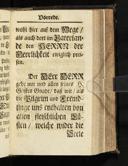 Vorrede.
wohl hier auf dem Wege /
als auch dort im Vaterlan-
de den HERRN der
Herrlichkeit ewiglich prei-
sen.
Der Herr HERR
gebe mir und allen seines
Geistes Gnade / daß wir / als
die Pilgrim und Frembd-
linge uns enthalten von
allen fleischlichen Lü-
sten / welche wider die
Seele